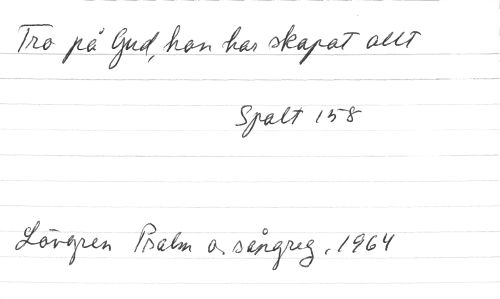 Tro på Gud, han har skapat allt
Spalt 158
Lövgren Psalm o. sångreg. 1964